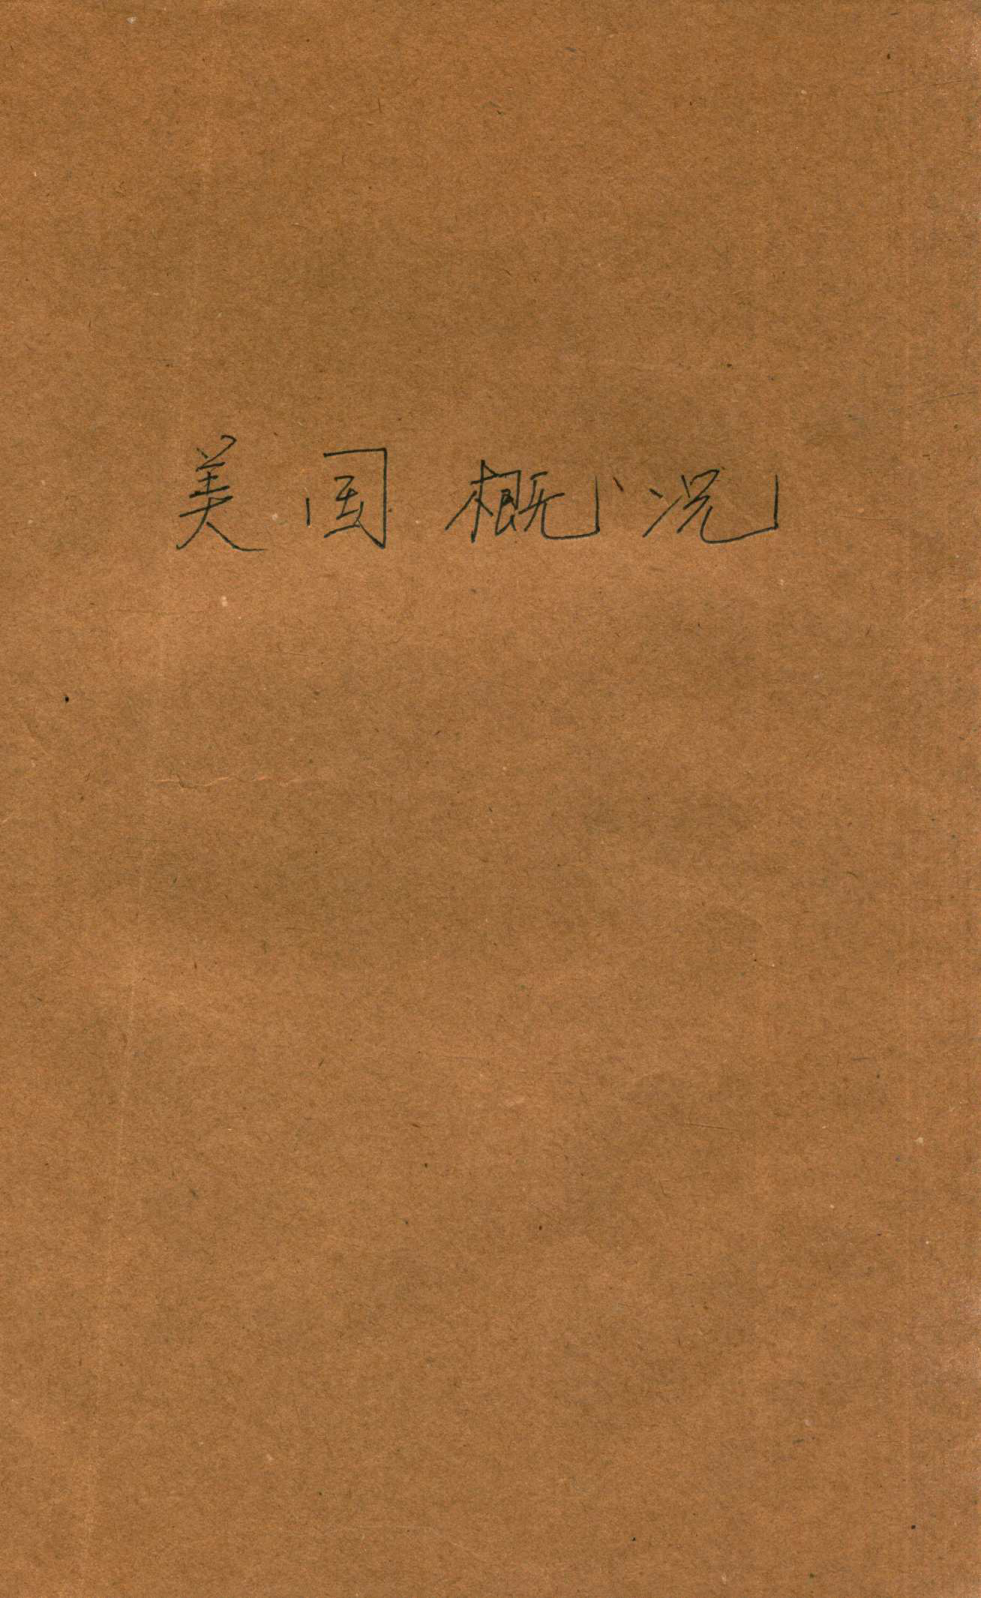 美国概况